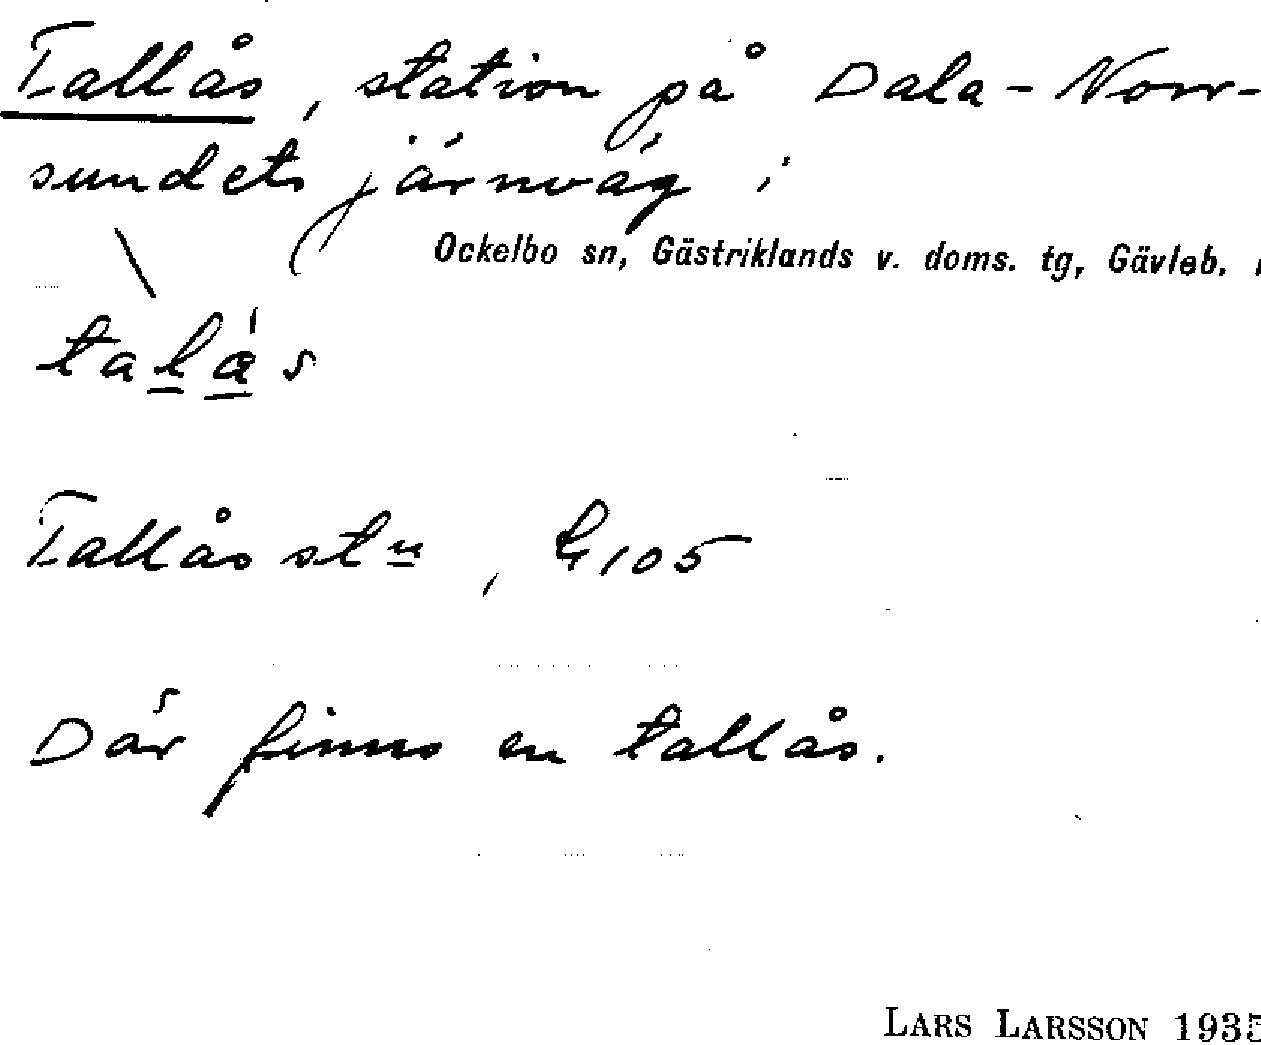 Tallås, station på Dala-Norr-
sundets järnväg i
Ockelbo sn, Gästriklands v. doms. tg, Gävleb.
talås
Tallås stn, 105
Där finns en tallås.
LARS LARSSON 1935